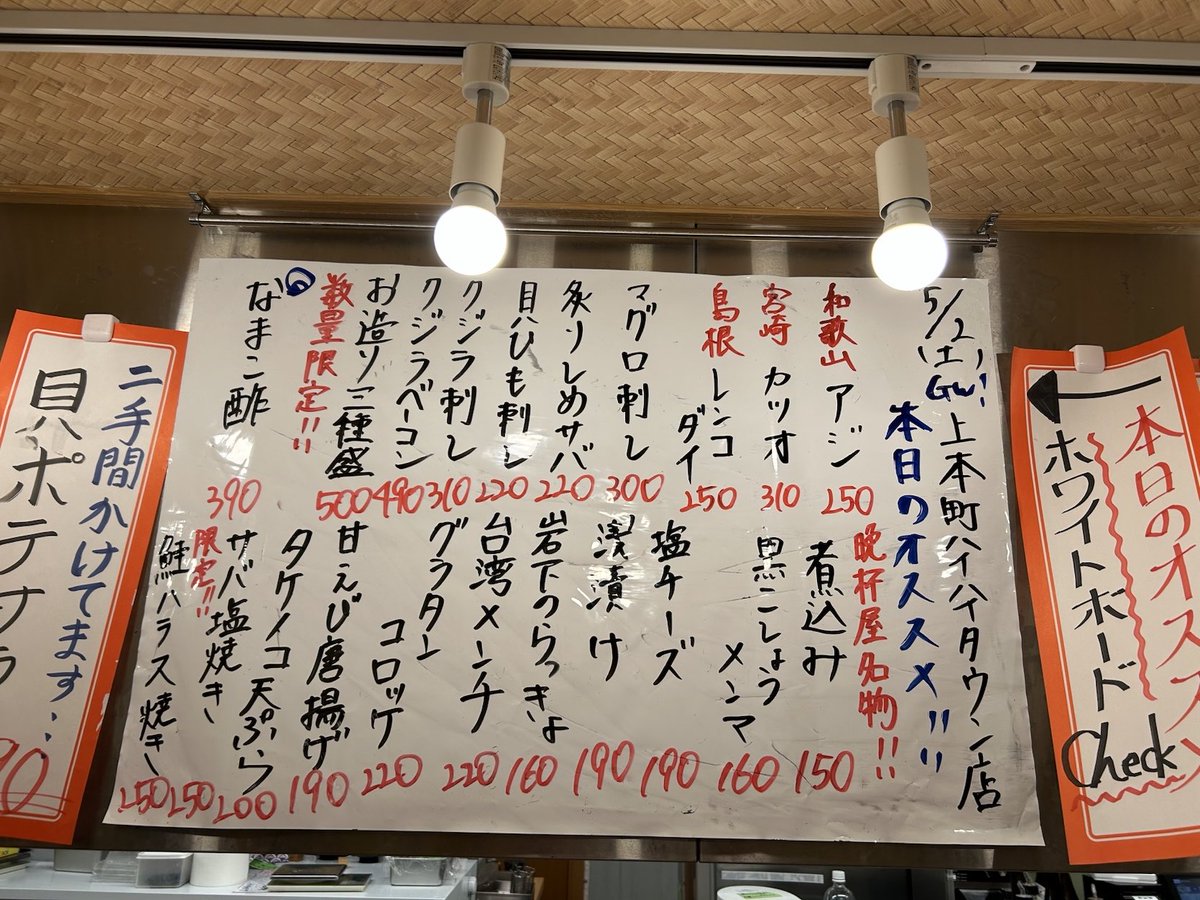 本日のオスス
ホワイトボード
Check
5/2(土)GW! 上本町ハイハイタウン店
本日のオススメ!!!
和歌山 アジ 250
宮崎 カツオ 310
島根 レンコダイ 250
マグロ刺し 300
炙りしめサバ 220
貝ひも刺し 220
クジラ刺し 310
クジラベーコン 490
お造り三種盛 500
数量限定!!
なまこ酢 390
晩杯屋名物!!
煮込み 150
黒こしょうメンマ 160
塩チーズ 190
浅漬け 190
岩下のらっきょ 160
台湾メンチ 220
グラタンコロッケ 220
甘えび唐揚げ 190
タケノコ天ぷら 200
サバ塩焼き 250
限定!!
鮭ハラス焼き 250
二手間かけてます..
貝ポテサラ
90